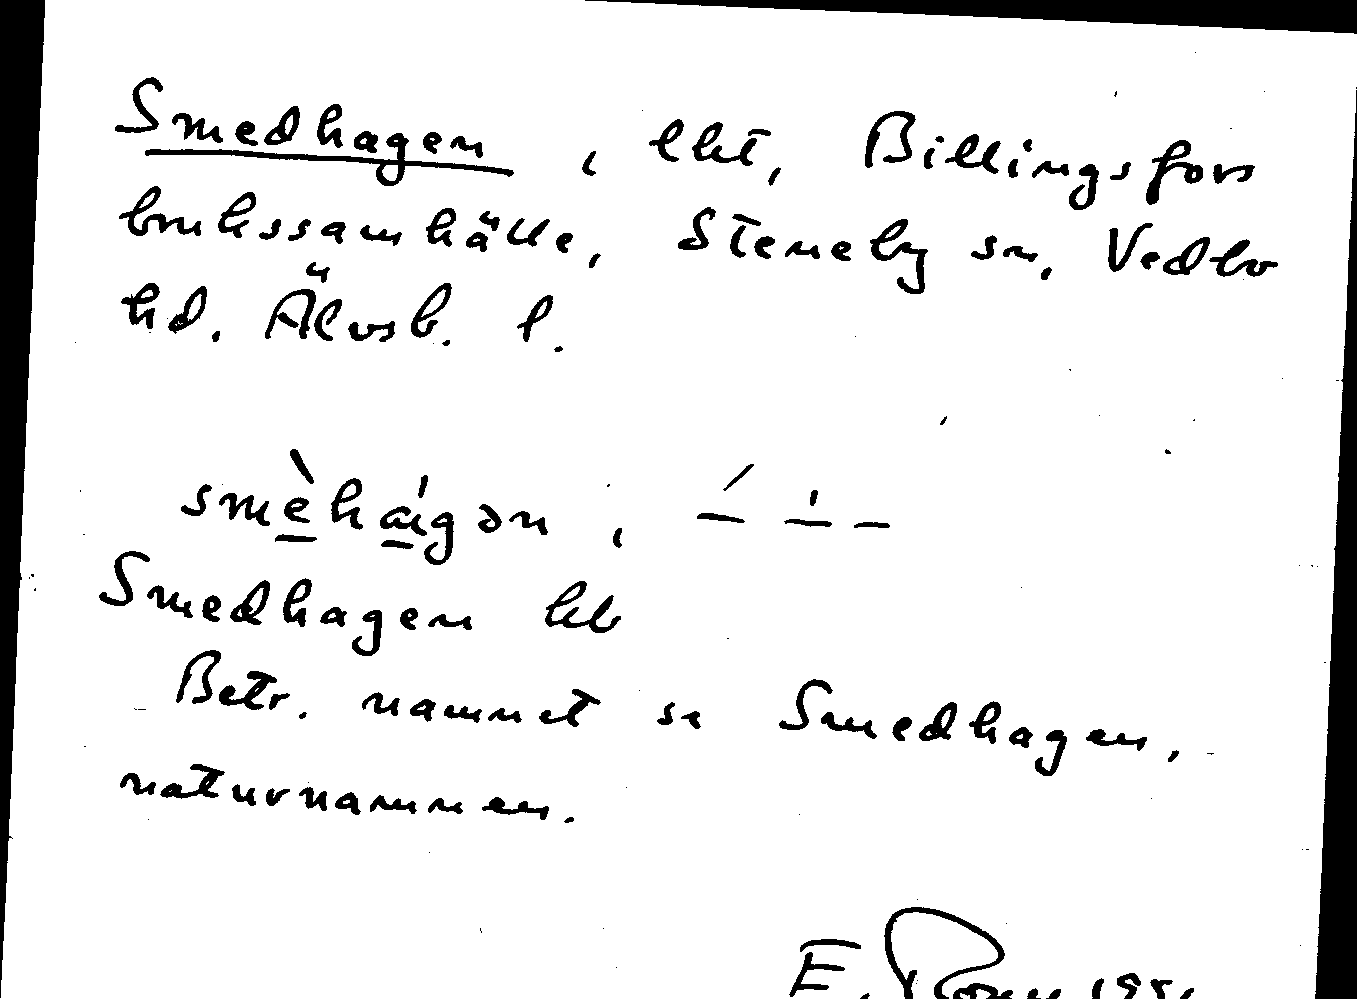 Smedhagen, lht, Billingsfors
brukssamhälle, Steneby sn, Vedbo
hd. Älvsb. l.
smèhágən, –́ –̍ –
Smedhagen hb
Betr. namnet se Smedhagen,
naturnamnen.
E.